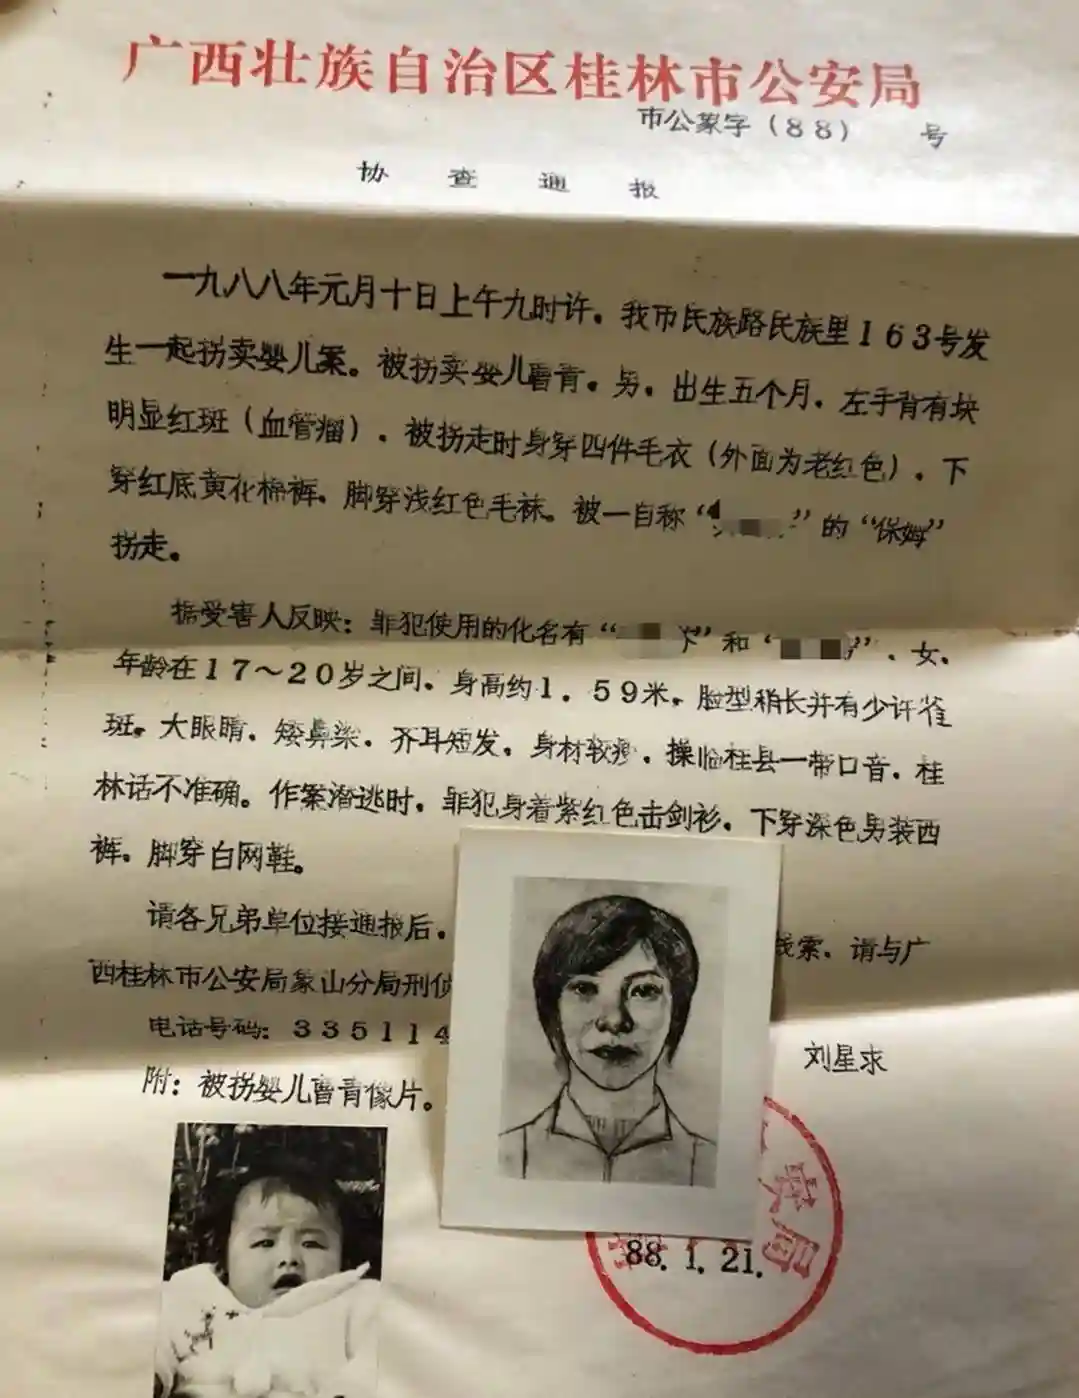 广西壮族自治区桂林市公安局
市公象字（88）　号
协查通报
一九八八年元月十日上午九时许．我市民族路民族里163号发
生一起拐卖婴儿案。被拐卖婴儿曹青．男．出生五个月．左手背有块
明显红斑（血管瘤）．被拐走时身穿四件毛衣（外面为老红色）．下
穿红底黄化棉裤．脚穿浅红色毛袜。被一自称“”的“保姆”
拐走。
据受害人反映：罪犯使用的化名有“”和“”．女．
年龄在17～20岁之间．身高约1．59米．脸型稍长并有少许雀
斑。大眼睛．矮鼻梁．齐耳短发．身材较瘦．操临桂县一带口音．桂
林话不准确。作案潜逃时．罪犯身着紫红色击剑衫．下穿深色男装西
裤。脚穿白网鞋。
请各兄弟单位接通报后．线索．请与广
西桂林市公安局象山分局刑侦
电话号码：335114
刘星求
附：被拐婴儿曹青像片。
安局
88．1．21．